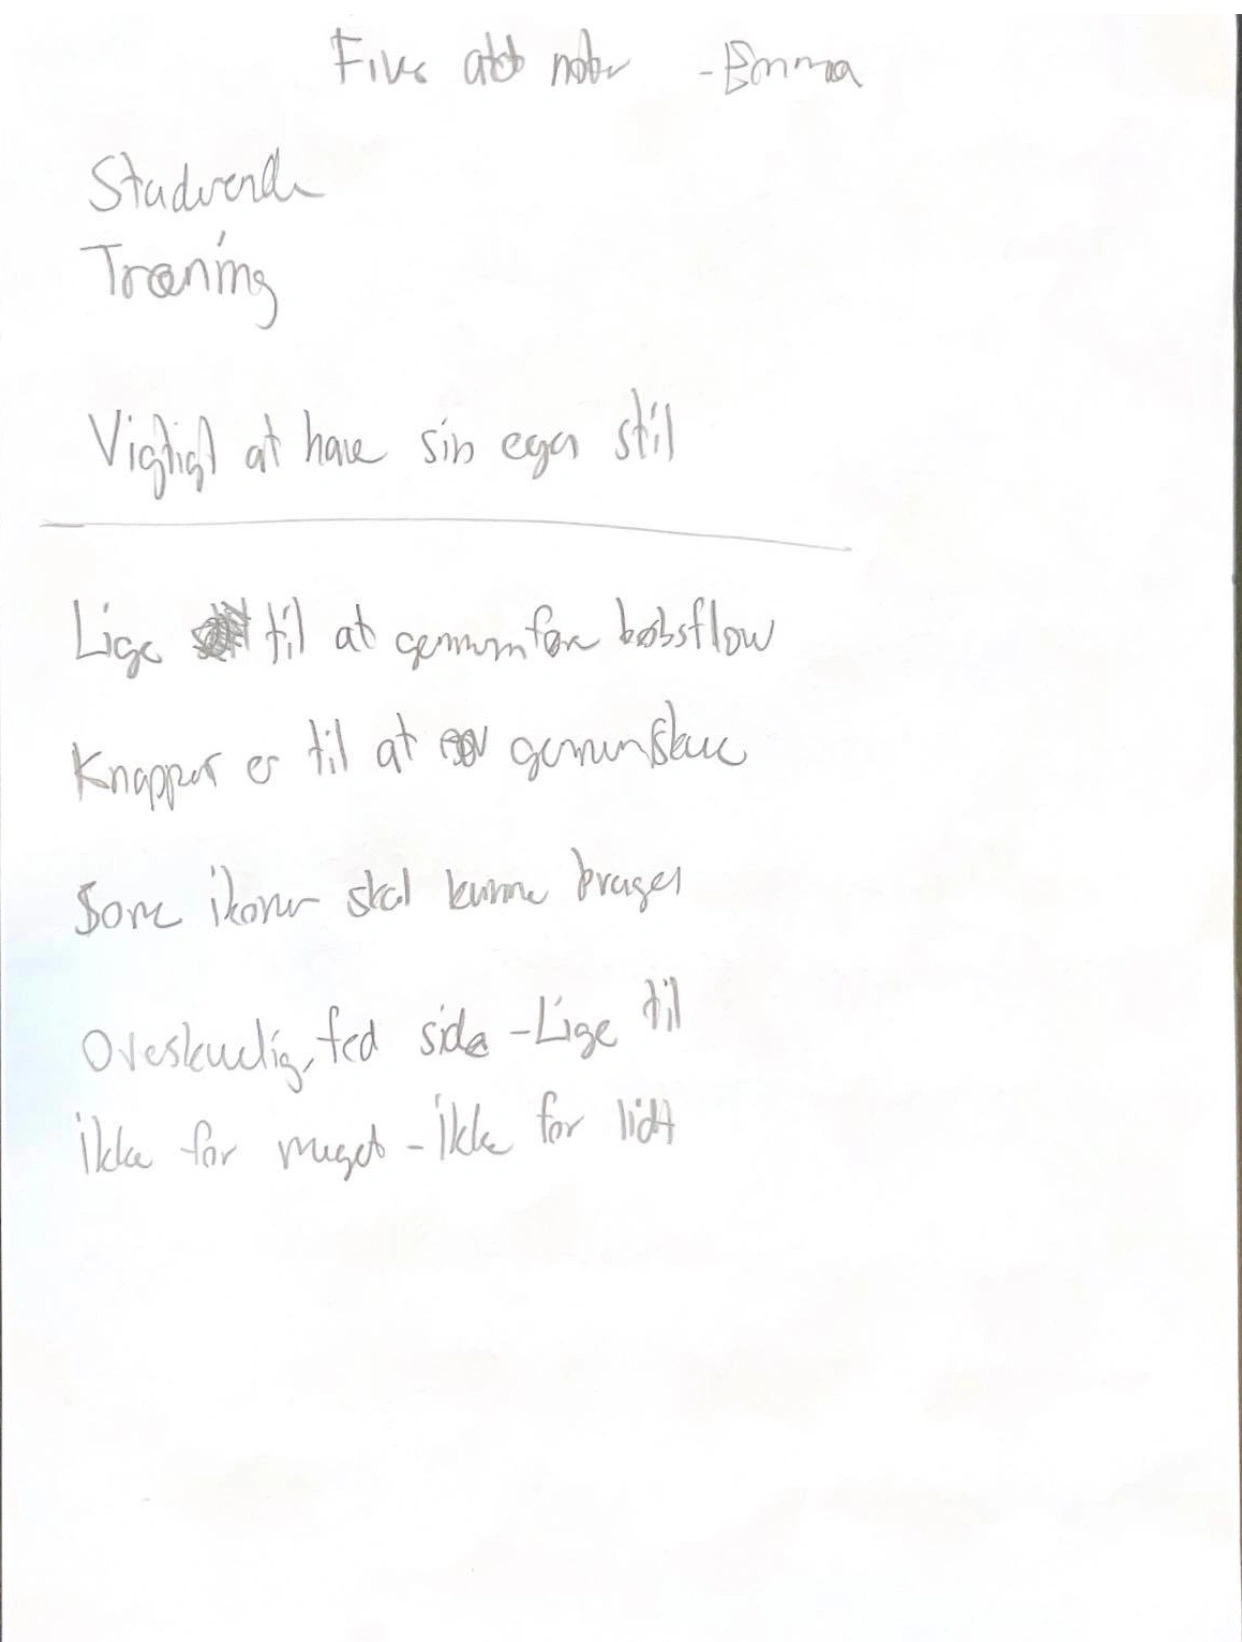 Five act noter - Emma
Studerende
Træning
Vigtigt at have sin egen stil
Lige til at gennemføre købsflow
Knapper er til at gennemskue
Some ikoner skal kunne bruges
Overskuelig, fed side - Lige til
ikke for meget - ikke for lidt